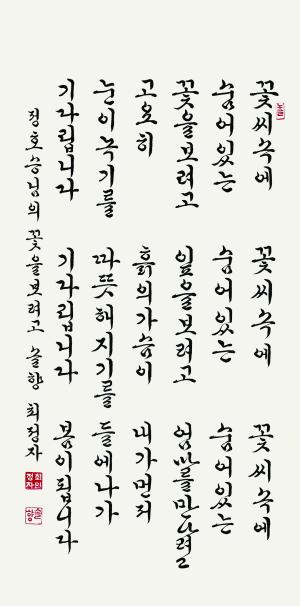 꽃씨속에
숨어있는
꽃을보려고
고요히
눈이녹기를
기다립니다
꽃씨속에
숨어있는
잎을보려고
흙의가슴이
따뜻해지기를
기다립니다
꽃씨속에
숨어있는
엄마를만나려고
내가먼저
들에나가
봄이됩니다
정호승님의 꽃을보려고 솔향 최정자
솔향